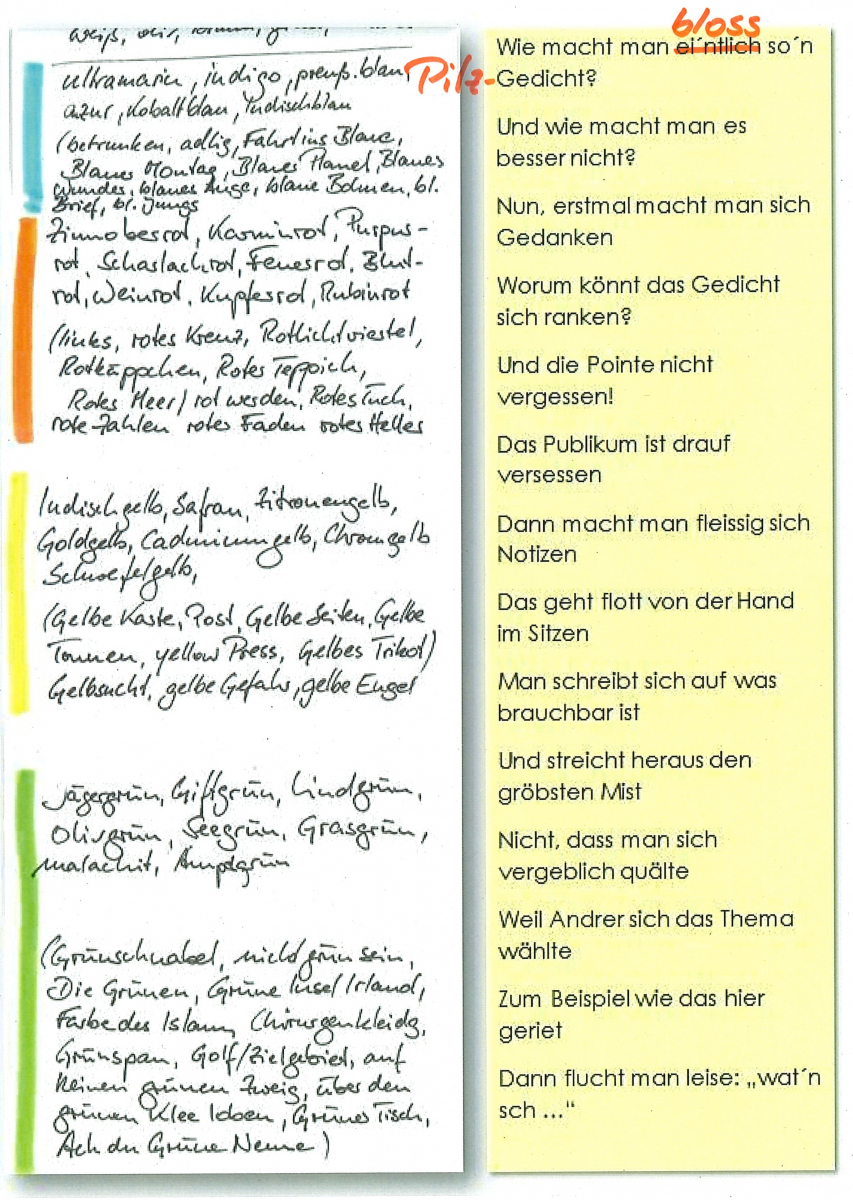 weiß,
ultramarin, indigo, preuß.blau,
azur, Kobaltblau, Indischblau
(betrunken, adlig, Fahrt ins Blaue,
Blauer Montag, Blauer Planet, Blaues
Wunder, blaues Auge, blaue Bohnen, bl.
Brief, bl. Jungs
Zinnoberrot, Karminrot, Purpur-
rot, Scharlachrot, Feuerrot, Blut-
rot, Weinrot, Kupferrot, Rubinrot
(links, rotes Kreuz, Rotlichtviertel,
Rotkäppchen, Roter Teppich,
Rotes Meer) rot werden, Rotes Tuch,
rote Zahlen roter Faden rotes Helles
Indischgelb, Safran, Zitronengelb,
Goldgelb, Cadmiumgelb, Chromgelb
Schwefelgelb,
(Gelbe Karte, Post, Gelbe Seiten, Gelbe
Tonnen, yellow Press, Gelbes Trikot)
Gelbsucht, gelbe Gefahr, gelbe Engel
Jägergrün, Giftgrün, Lindgrün,
Olivgrün, Seegrün, Grasgrün,
malachit, Ampelgrün
(Grünschnabel, nicht grün sein,
Die Grünen, Grüne Insel Irland,
Farbe des Islam, Chirurgenkleidg,
Grünspan, Golf/Zielgebiet, auf
keinen grünen Zweig, über den
grünen Klee loben, Grüner Tisch,
Ach du Grüne Neune)
bloss
Wie macht man ei´ntlich so´n
Pilz-Gedicht?
Und wie macht man es
besser nicht?
Nun, erstmal macht man sich
Gedanken
Worum könnt das Gedicht
sich ranken?
Und die Pointe nicht
vergessen!
Das Publikum ist drauf
versessen
Dann macht man fleissig sich
Notizen
Das geht flott von der Hand
im Sitzen
Man schreibt sich auf was
brauchbar ist
Und streicht heraus den
gröbsten Mist
Nicht, dass man sich
vergeblich quälte
Weil Andrer sich das Thema
wählte
Zum Beispiel wie das hier
geriet
Dann flucht man leise: „wat´n
sch ...“